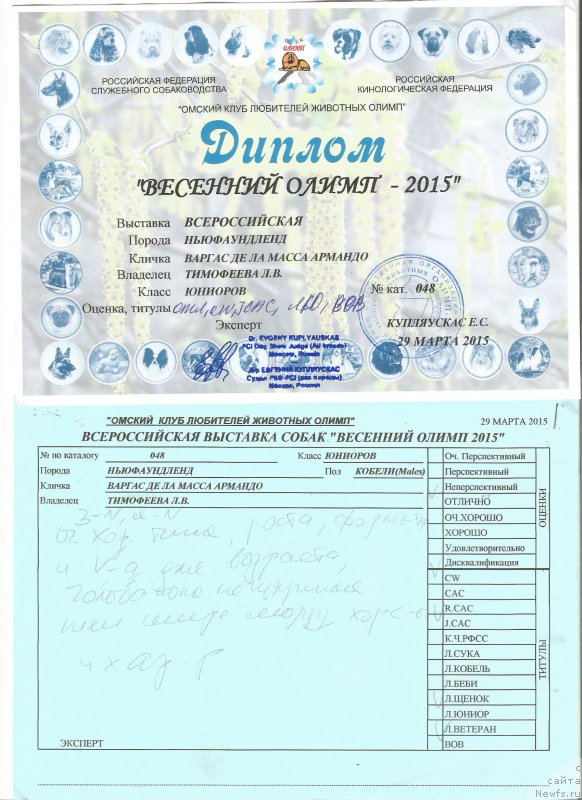 ОЛИМП
РОССИЙСКАЯ ФЕДЕРАЦИЯ
СЛУЖЕБНОГО СОБАКОВОДСТВА
РОССИЙСКАЯ
КИНОЛОГИЧЕСКАЯ ФЕДЕРАЦИЯ
"ОМСКИЙ КЛУБ ЛЮБИТЕЛЕЙ ЖИВОТНЫХ ОЛИМП"
Диплом
"ВЕСЕННИЙ ОЛИМП - 2015"
Выставка ВСЕРОССИЙСКАЯ
Порода НЬЮФАУНДЛЕНД
Кличка ВАРГАС ДЕ ЛА МАССА АРМАНДО
Владелец ТИМОФЕЕВА Л.В.
Класс ЮНИОРОВ
№ кат. 048
Оценка, титулы отл, CW, JCAC, ЛЮ, BOB
Эксперт
КУПЛЯУСКАС Е.С.
29 МАРТА 2015
Dr. EVGENY KUPLYAUSKAS
FCI Dog Show Judge (All breeds)
Moscow, Russia
Д-р ЕВГЕНИЙ КУПЛЯУСКАС
Судья РКФ-FCI (все породы)
Москва, Россия
"ОМСКИЙ КЛУБ ЛЮБИТЕЛЕЙ ЖИВОТНЫХ ОЛИМП"
29 МАРТА 2015
ВСЕРОССИЙСКАЯ ВЫСТАВКА СОБАК "ВЕСЕННИЙ ОЛИМП 2015"
№ по каталогу 048 Класс ЮНИОРОВ
Порода НЬЮФАУНДЛЕНД Пол КОБЕЛИ(Males)
Кличка ВАРГАС ДЕ ЛА МАССА АРМАНДО
Владелец ТИМОФЕЕВА Л.В.
Оч. Перспективный
Перспективный
Неперспективный
ОТЛИЧНО
ОЧ.ХОРОШО
ХОРОШО
Удовлетворительно
Дисквалификация
ОЦЕНКИ
CW
CAC
R.CAC
J.CAC
К.Ч.РФСС
Л.СУКА
Л.КОБЕЛЬ
Л.БЕБИ
Л.ЩЕНОК
Л.ЮНИОР
Л.ВЕТЕРАН
BOB
ТИТУЛЫ
Оч. хор. типа, роста, формата
и для возраста,
голова
ЭКСПЕРТ
с
сайта
Newfs.ru